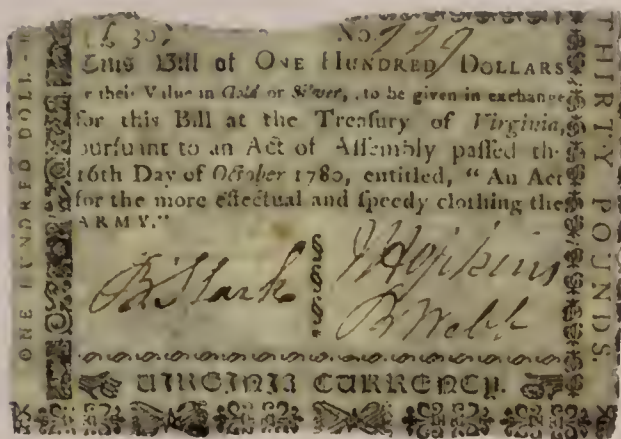 £ 30, No. 779
This Bill of ONE HUNDRED DOLLARS
r their Value in Gold or Silver, to be given in exchange
for this Bill at the Treaſury of Virginia,
purſuant to an Act of Aſſembly paſſed th
16th Day of October 1780, entitled, “ An Act
for the more effectual and ſpeedy clothing the
ARMY.”
J Hopkins
B. Stark
B Webb
VIRGINIA CURRENCY.
ONE HUNDRED DOLL
THIRTY POUNDS.